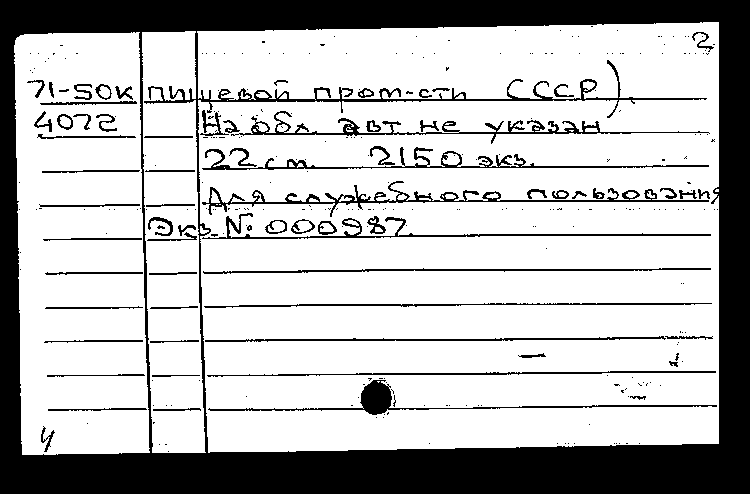 2
71-50к пищевой пром-сти СССР).
4072 На обл. авт не указан
22 см. 2150 экз.
Для служебного пользования
Экз. №: 000987.
ч